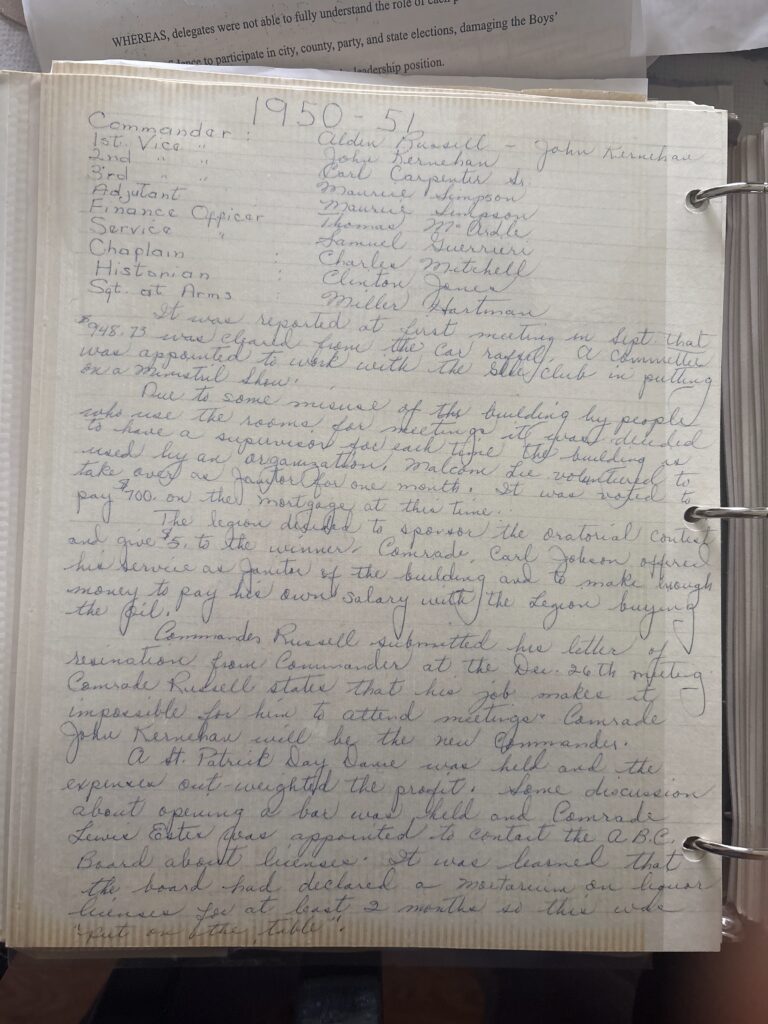 WHEREAS, delegates were not able to fully understand the role of each
to participate in city, county, party, and state elections, damaging the Boys'
leadership position.
1950-51
Commander : Alden Russell - John Kernehan
1st. Vice " : John Kernehan
2nd " " Carl Carpenter Sr.
3rd " " Maurice Simpson
Adjutant Maurice Simpson
Finance Officer Thomas McArdle
Service " Samuel Guerrieri
Chaplain : Charles Mitchell
Historian : Clinton Jones
Sgt. at Arms Miller Hartman
It was reported at first meeting in Sept that
$948.73 was cleared from the car raffel. A committee
was appointed to work with the Glee Club in putting
on a Ministril Show.
Due to some misuse of the building by people
who use the rooms for meetings it was decided
to have a supervisor for each time the building is
used by an organization. Malcom Lee volunteered to
take over as Janitor for one month. It was voted to
pay $700. on the mortgage at this time.
The legion decided to sponsor the oratorial contest
and give $5. to the winner. Comrade, Carl Jobson, offered
his service as Janitor of the building and to make enough
money to pay his own salary with the Legion buying
the oil.
Commander Russell submitted his letter of
resination from Commander at the Dec. 26th meeting.
Comrade Russell states that his job makes it
impossible for him to attend meetings. Comrade
John Kernehan will be the new Commander.
A St. Patrick Day Dance was held and the
expenses out-weighted the profit. Some discussion
about opening a bar was held and Comrade
Lewis Estes was appointed to contact the A.B.C.
Board about licenses. It was learned that
the board had declared a moetarium on liquor
licenses for at least 2 months so this was
"put on the table".